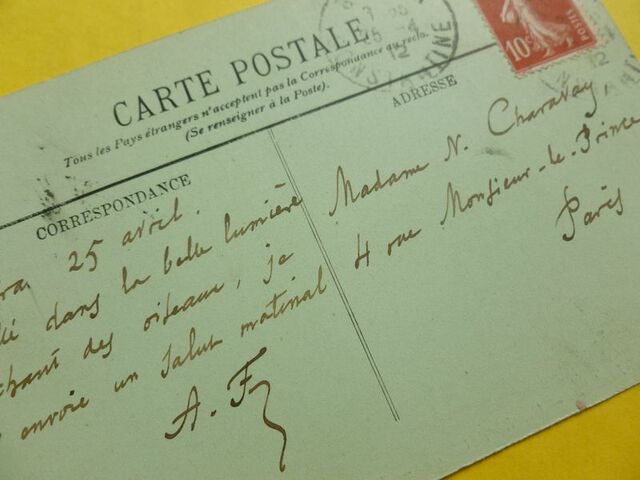 CARTE POSTALE
Tous les Pays étrangers n'acceptent pas la Correspondance au recto.
(Se renseigner à la Poste).
CORRESPONDANCE
ADRESSE
10c
POSTES
25 4
12
25 avril.
dans la belle lumière
chant des oiseaux, je
envoie un salut matinal
A. F.
Madame N. Charavay,
4 rue Monsieur-le-Prince
Paris